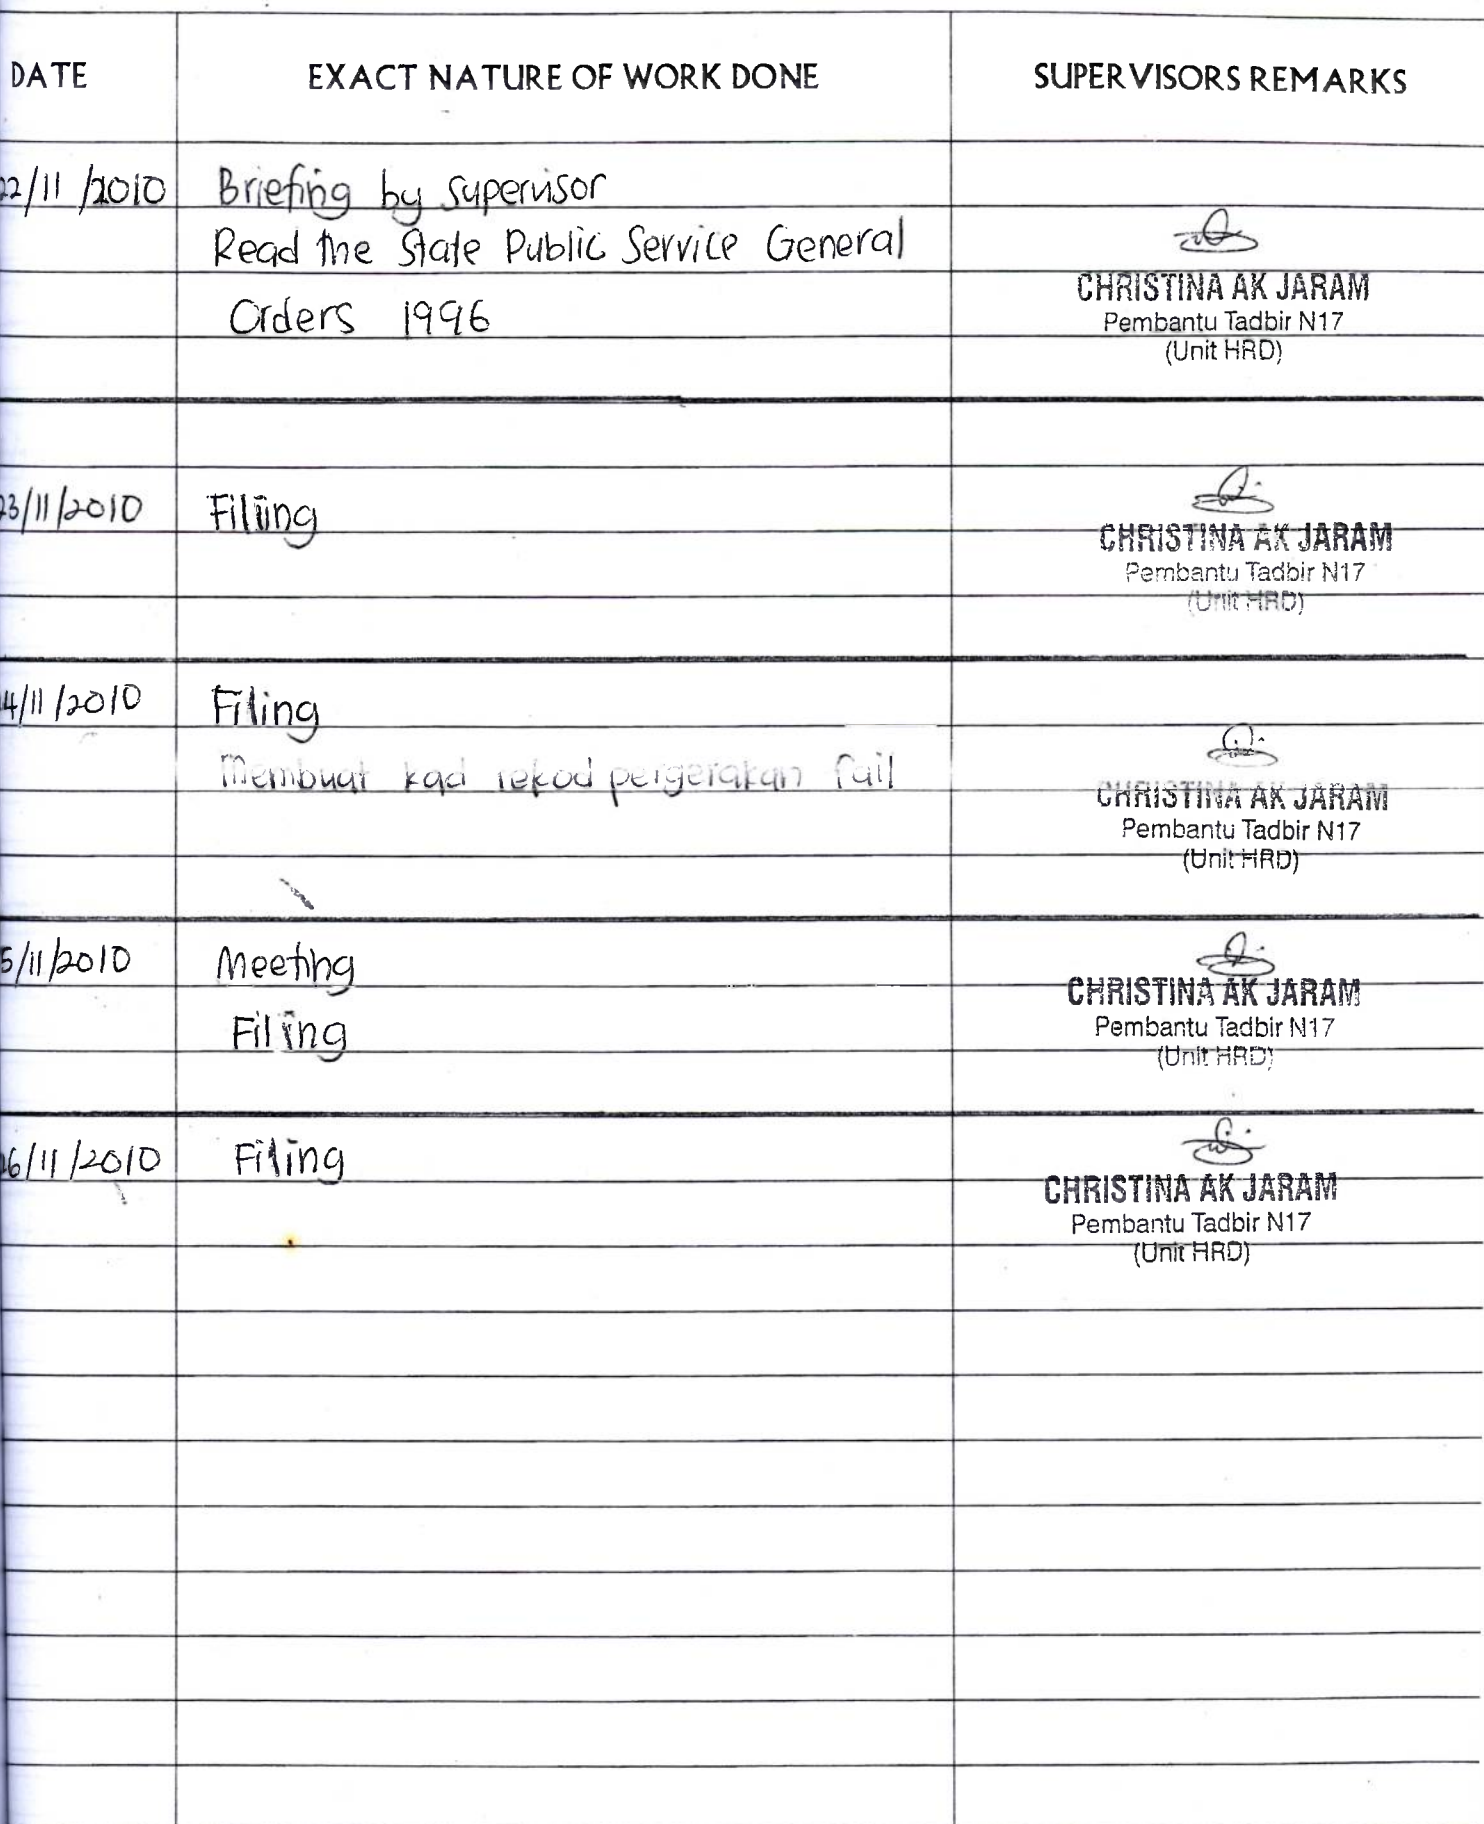 DATE EXACT NATURE OF WORK DONE SUPERVISORS REMARKS
22/11/2010 Briefing by supervisor
Read the State Public Service General
Orders 1996
CHRISTINA AK JARAM
Pembantu Tadbir N17
(Unit HRD)
23/11/2010 Filing
CHRISTINA AK JARAM
Pembantu Tadbir N17
(Unit HRD)
4/11/2010 Filing
Membuat kad rekod pergerakan fail
CHRISTINA AK JARAM
Pembantu Tadbir N17
(Unit HRD)
5/11/2010 Meeting
Filing
CHRISTINA AK JARAM
Pembantu Tadbir N17
(Unit HRD)
26/11/2010 Filing
CHRISTINA AK JARAM
Pembantu Tadbir N17
(Unit HRD)